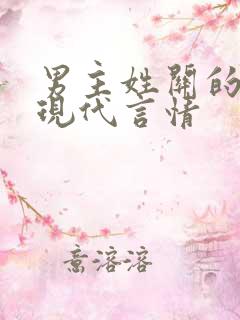 男主姓關的
現代言情
喬溶溶